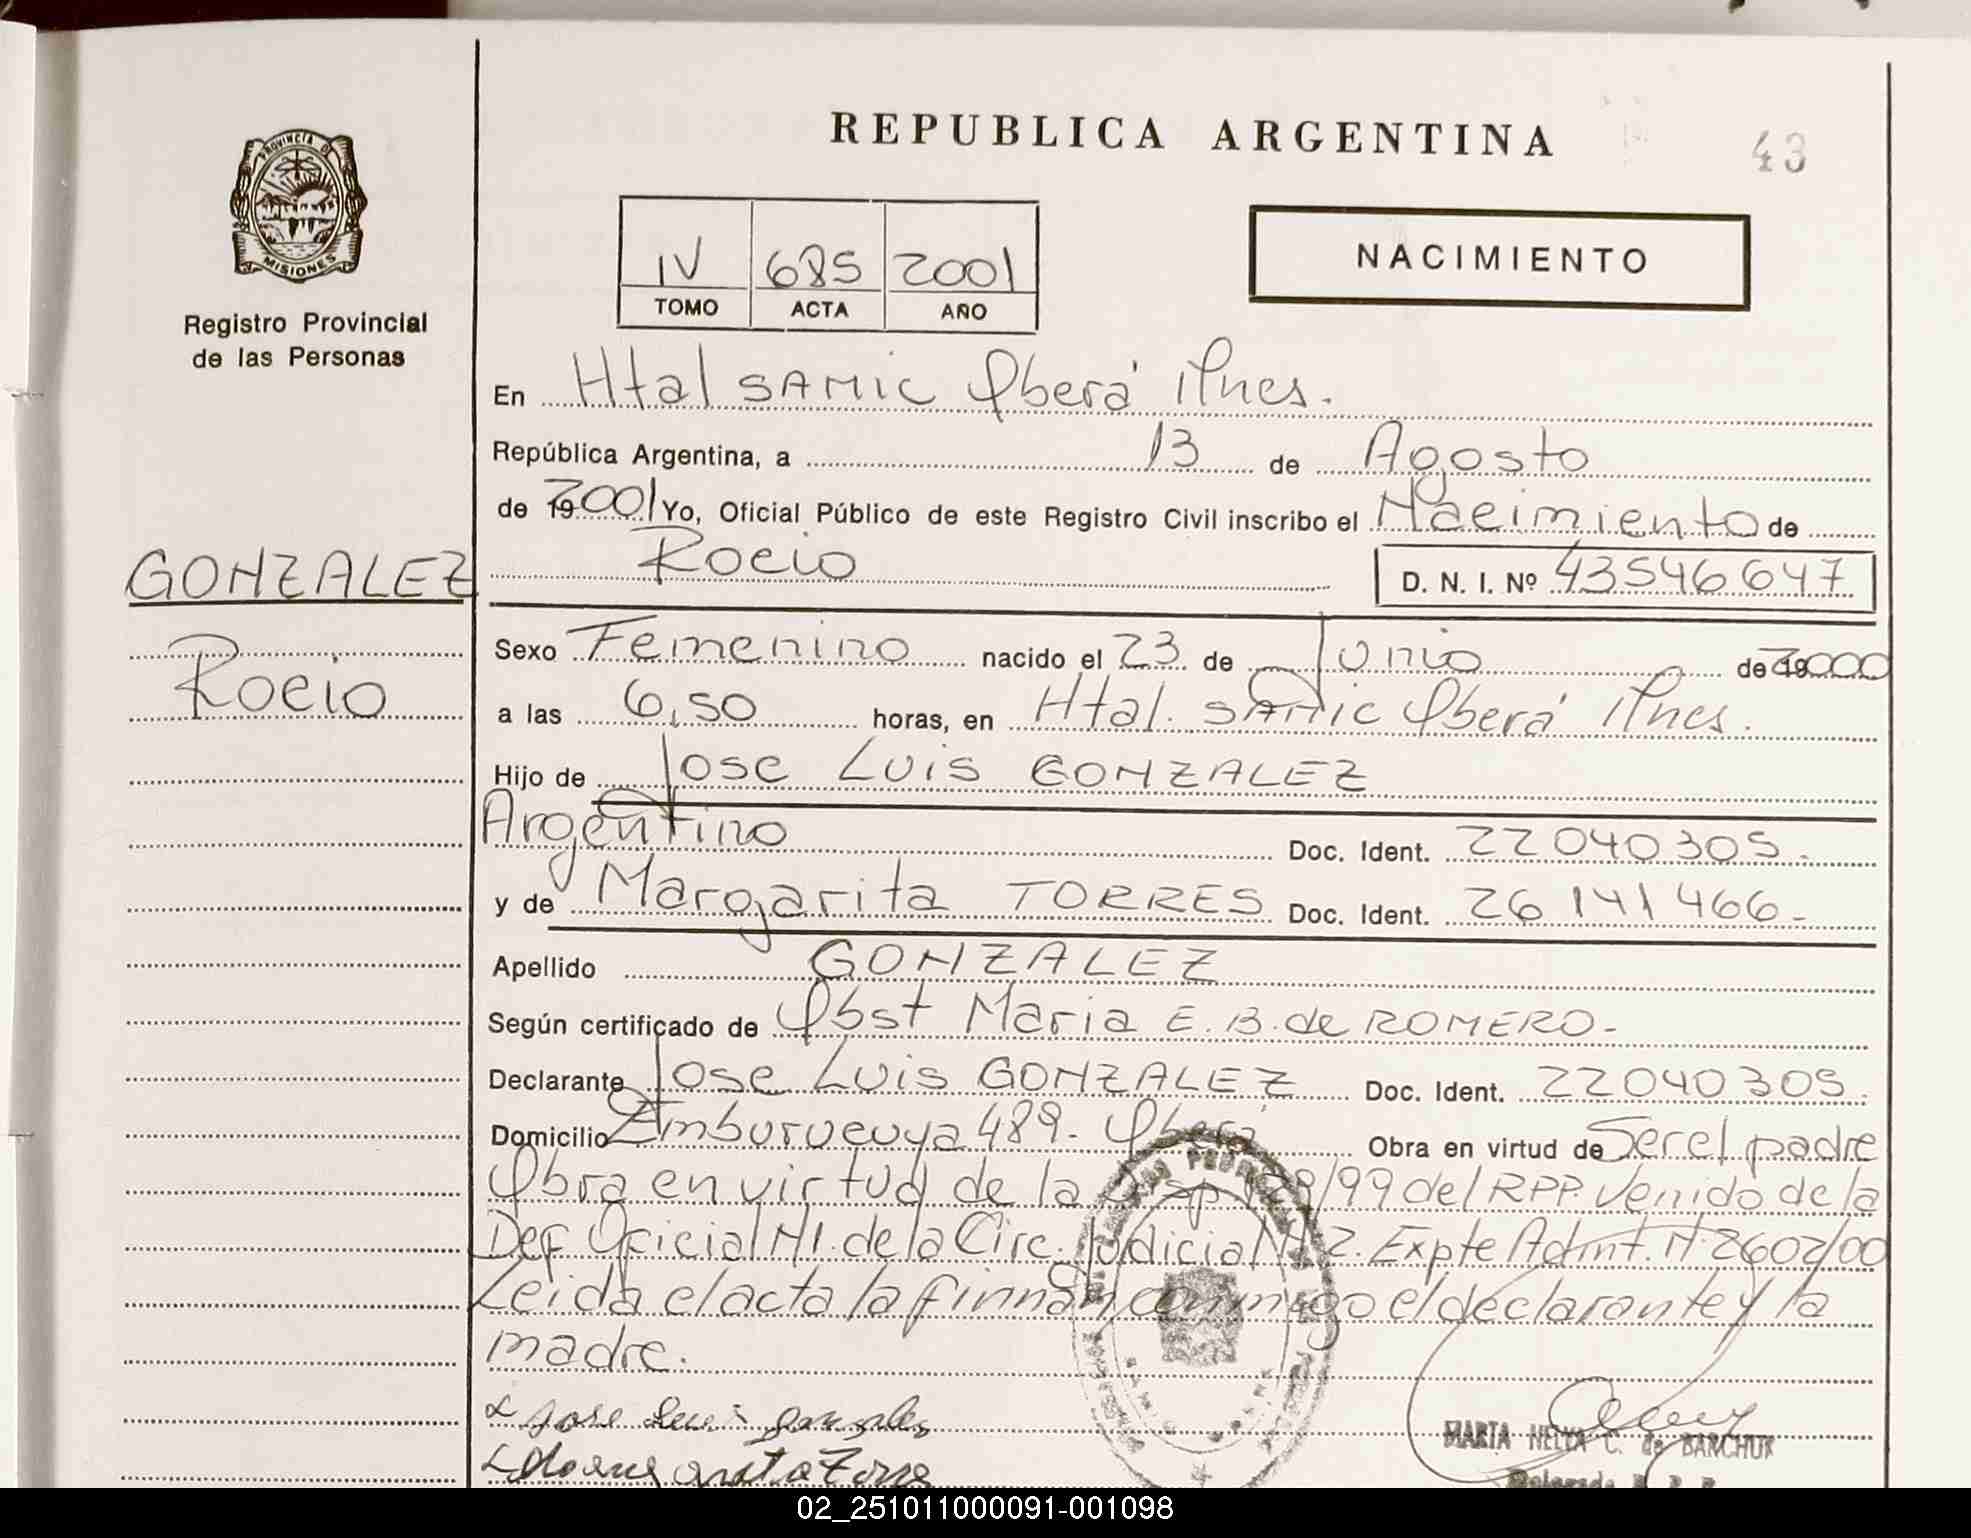 REPUBLICA ARGENTINA
43
PROVINCIA DE
MISIONES
Registro Provincial
de las Personas
IV 685 2001
TOMO ACTA AÑO
NACIMIENTO
En Htal SAMIC Oberá Mnes.
República Argentina, a 13 de Agosto
de 19 2001 Yo, Oficial Público de este Registro Civil inscribo el Nacimiento de
Rocio D. N. I. Nº 43546647
GONZALEZ
Rocio
Sexo Femenino nacido el 23 de Junio de 19 2000
a las 6,50 horas, en Htal. SAMIC Oberá Mnes.
Hijo de Jose Luis GONZALEZ
Argentino Doc. Ident. 22040305.
y de Margarita TORRES Doc. Ident. 26141466-
Apellido GONZALEZ
Según certificado de Obst Maria E. B. de ROMERO-
Declarante Jose Luis GONZALEZ Doc. Ident. 22040305.
Domicilio 489- Oberá Obra en virtud de Ser el padre
Obra en virtud de la Disp /99 del RPP. Venido de la
Def Oficial N1. de la Circ. Judicial N 2. Expte Admt. N. 2602/00
Leida el acta la firman conmigo el declarante y la
madre.
Jose Luis Gonzalez
Torres
MARTA NELVA C. de BARCHUK
Delegada R. P. P.
02_251011000091-001098